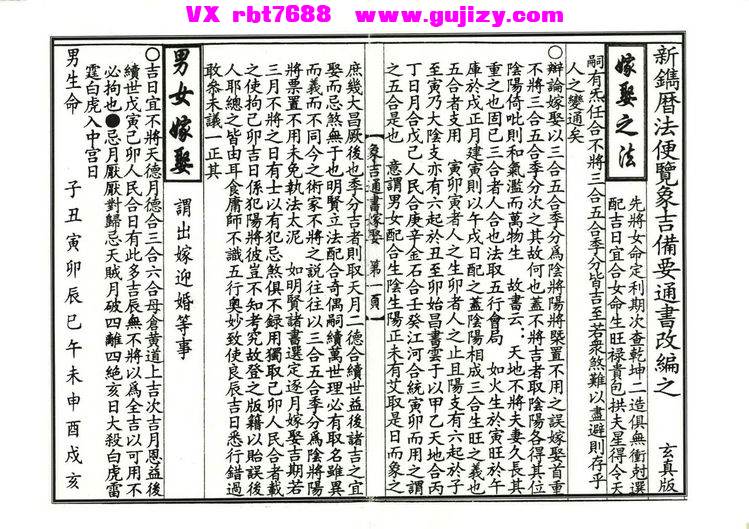 VX rbt7688  www.gujizy.com
新鐫曆法便覽象吉備要通書改編之　玄真版
嫁娶之法
先將女命定利期次查乾坤二造俱無衝尅選
配吉日宜合女命生旺禄貴包拱夫星得令天
嗣有炁任合不將三合五合季分皆吉至若衆煞難以盡避則存乎
人之變通矣
〇辯論嫁娶以三合五合季分爲陰將陽將槩置不用之誤嫁娶首重
不將三合五合季分次之其故何也蓋不將吉者取陰陽各得其位
陰陽倚叱則和氣濫而萬物生　故書云．天地不將夫妻久長其
重之也固已三合者人合也法取五行會局　如火生於寅旺於午
庫於戌正月建寅則以午戌日配之蓋陰陽相成三合生旺之義也
五合者支用　寅卯寅者人之生卯者人之止且陽支有六起於子
至寅乃大陰支亦有六起於丑至卯始昌書雲于以甲乙天地合丙
丁日月合戊己人民合庚辛金石合壬癸江河合統寅卯而用之謂
之五合是也　意謂男女配合生陰生陽正未有艾取是日而象之
象吉通書嫁娶　第一頁
庶幾大昌厥後也季分吉者則取天月二德合續世益後諸吉之宜
娶而忌煞無于也明賢立法配合奇偶嗣續萬世理必有取名雖異
而義而不同今之術家不將之説往往以三合五合季分爲陰將陽
將票置不用未免執法太泥　如明賢諸書選定逐月嫁娶吉期若
三月不將之日有士以有犯忌煞俱不録用獨取己卯人民合者載
之使拘己卯吉日係犯陽將彼豈不知考究故登之版籍以貽誤後
人耶總之皆由耳食庸師不識五行奥妙致使良辰吉日悉行錯過
敢叅末議一正其
男女嫁娶　謂出嫁迎婚等事
〇吉日宜不將天德月德合三合六合母倉黄道上吉次吉月恩益後
續世戊寅己卯人民合日有此多吉辰無不將以爲全吉以可用不
必拘也●忌月厭厭對歸忌天賊月破四離四絶亥日大殺白虎雷
霆白虎入中宫日
男生命　子丑寅卯辰巳午未申酉戌亥